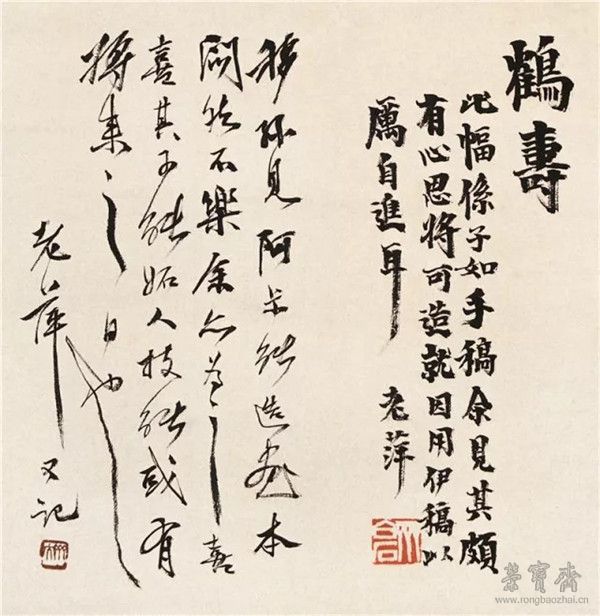 鶴壽
此幅係子如手稿余見其頗
有心思將可造就因用伊稿以
厲自進耳 老萍
移孫見阿能造畫本
悶然不樂余亦為之喜
喜其能妬人技能或有
將來之日也
老萍又記
榮寶齋
www.rongbaozhai.cn